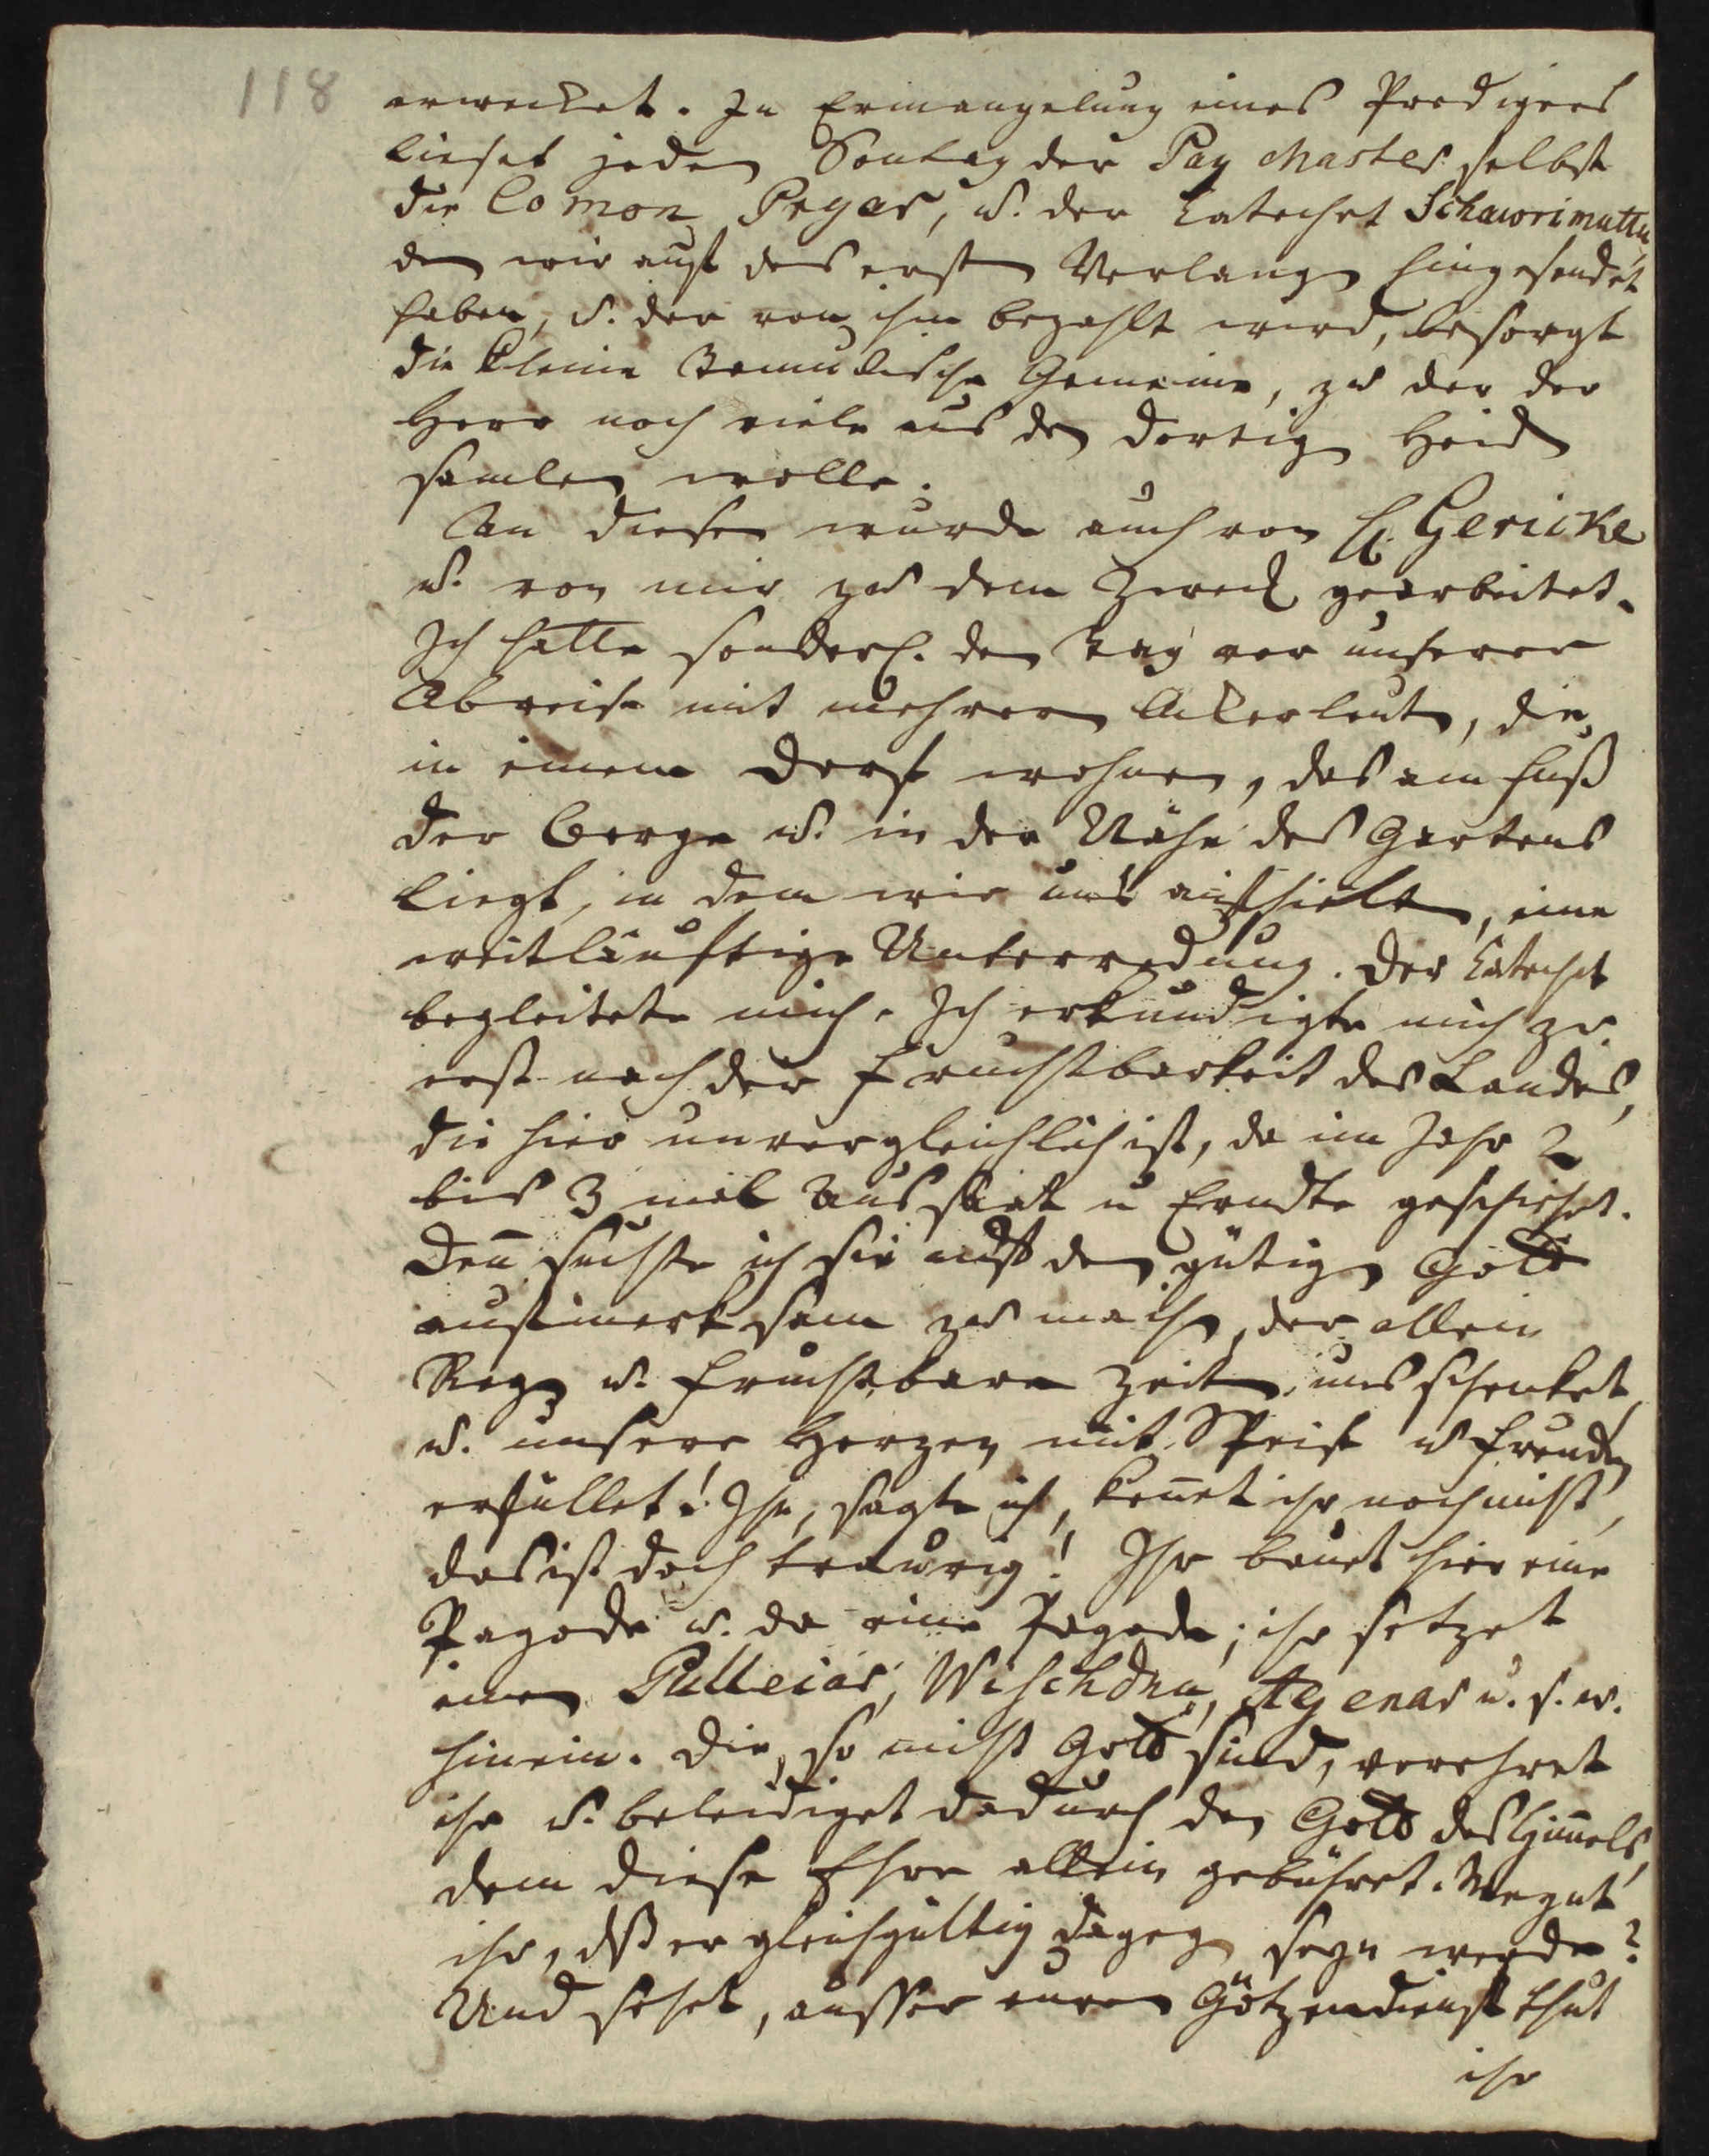 118
erwecket. In Ermangelung eines Predigers
lieset jeden Sontag der Pay Master selbst
die Comon Preyar, u. der Catechet Schawrimuttu,
den wir auf des ersten Verlangen hingesendet
haben, u. der von ihm bezahlt wird, besorgt
die kleine Tamulische Gemeine, zu der der
Herr noch viele aus den dortigen Heiden
samlen wolle.
An diesen wurde auch von H. Gericke
u. von mir zu dem Zweck gearbeitet.
Ich hatte sonderl. den Tag vor unserer
Abreise mit mehrern Akerleuten, die
in einem Dorf wohnen, das am Fuß
der Berge u. in der Nähe des Gartens
liegt, in dem wir uns aufhielten, eine
weitläuftige Unterredung. Der Catechet
begleitete mich. Ich erkundigte mich zu
erst nach der Fruchtbarkeit des Landes,
die hier unvergleichlich ist, da im Jahr 2
bis 3 mal Aussaat u Erndte geschiehet.
Den̄ suchte ich sie auf den gütigen Gott
aufmerksam zu machen, der allein
Regen u. fruchtbare Zeiten uns schenket,
u. unsere Herzen mit Speise u Freuden
erfüllet! Ihn, sagte ich, ken̄et ihr noch nicht,
das ist doch traurig! Ihr bauet hier eine
Pagode u. da eine Pagode; ihr setzet
einen Pulleiar, Wischdnu, Ayenar u. s. w.
hinein. Die, so nicht Gott sind, verehret
ihr u. beleidiget dadurch den Gott des Him̄els,
dem diese Ehre allein gebühret. Meynt
ihr, dß er gleichgültig dagegen seyn werde?
Und sehet, ausser euren Götzendienst thut
ihr